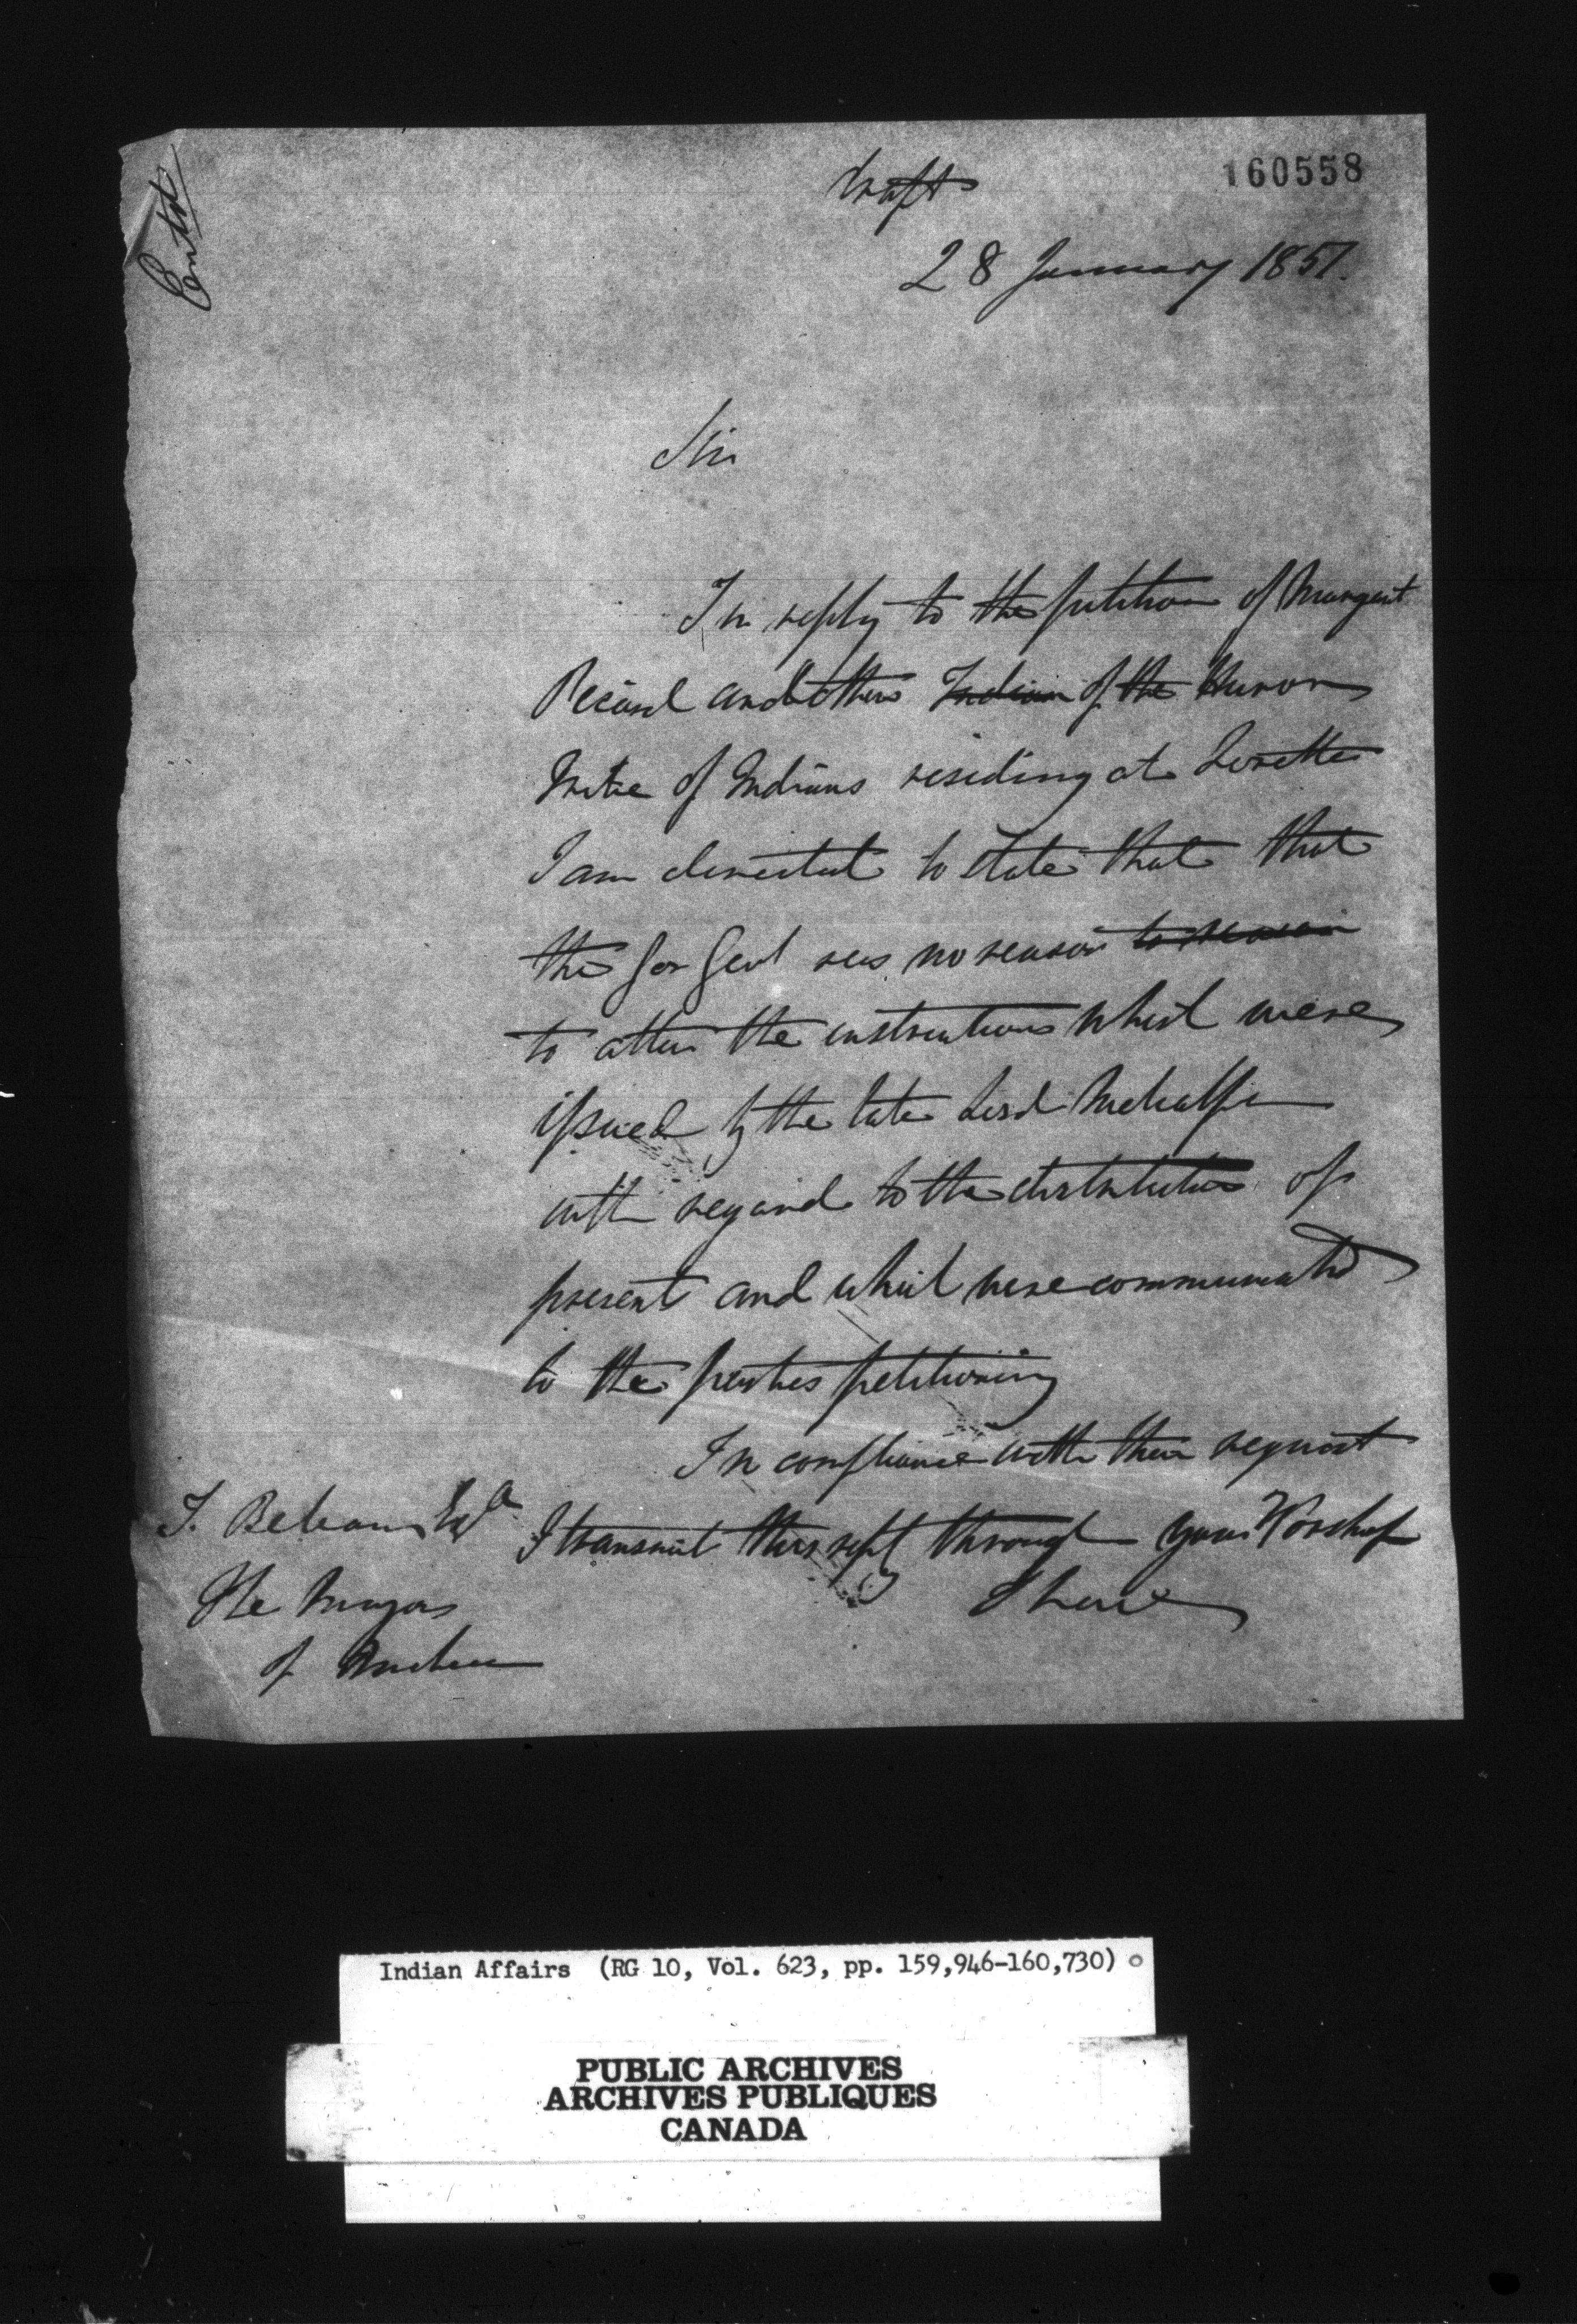 160558
Draft
Entd
28 January 1851.
Sir
In reply to the petition of Margaret
Picard and others Indian of the Huron
Tribe of Indians residing at Lorette
I am directed to state that that
the Gov Genl sees no reason to
to alter the instructions which were
issued by the late Lord Metcalfe
with regard to the distribution of
present and which were communicated
to the parties petitioning
In compliance with their request
I transmit this reply through your Worship
I have
Esqr
The Mayor
of Quebec
Indian Affairs (RG 10, Vol. 623, pp. 159,946-160,730)
PUBLIC ARCHIVES
ARCHIVES PUBLIQUES
CANADA